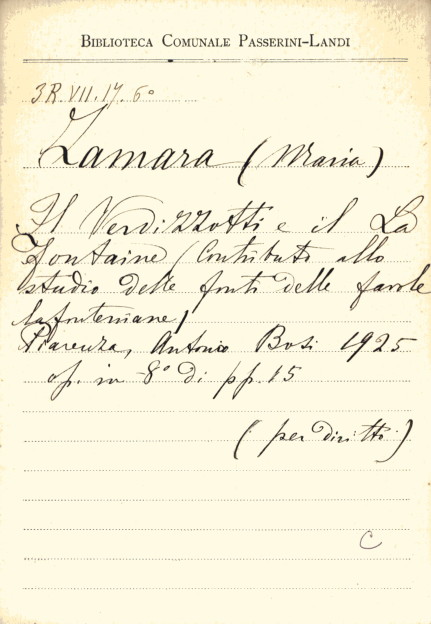 BIBLIOTECA COMUNALE PASSERINI-LANDI
3R.VII.17.6°
Zamara (Maria)
Il Verdizzotti e il La
Fontaine (Contributo allo
studio delle fonti delle favole
lafonteniane)
Piacenza, Antonio Bosi 1925
op. in 8° di pp. 15
(per diritti)
C